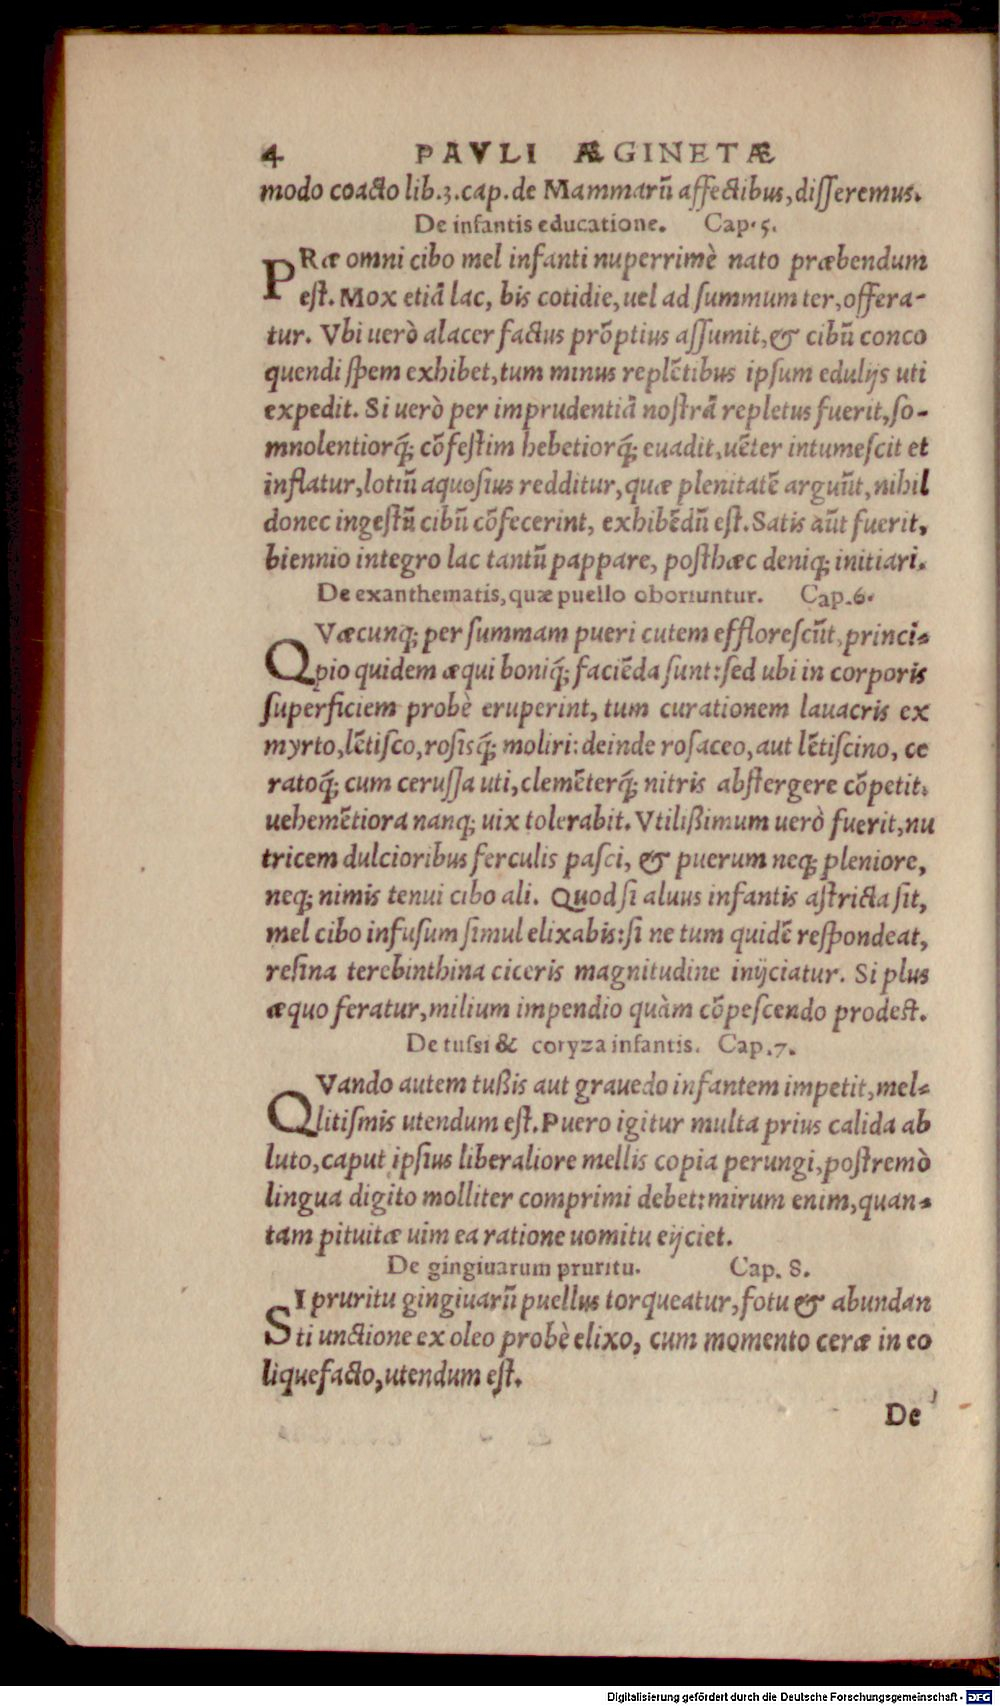 4 PAVLI ÆGINETÆ
modo coacto lib.3.cap.de Mammarū affectibus, disseremus.
De infantis educatione. Cap.5.
PRæ omni cibo mel infanti nuperrimè nato præbendum
est. Mox etiā lac, bis cotidie, uel ad summum ter, offera-
tur. Vbi uerò alacer factus prōptius assumit, & cibū conco
quendi spem exhibet, tum minus replētibus ipsum edulijs uti
expedit. Si uerò per imprudentiā nostrā repletus fuerit, so-
mnolentiorq́; cōfestim hebetiorq́; euadit, uēter intumescit et
inflatur, lotiū aquosius redditur, quæ plenitatē arguūt, nihil
donec ingestū cibū cōfecerint, exhibēdū est. Satis aūt fuerit,
biennio integro lac tantū pappare, posthæc deniq; initiari.
De exanthematis, quæ puello oboriuntur. Cap.6.
QVæcunq; per summam pueri cutem efflorescūt, princi-
pio quidem æqui boniq́; faciēda sunt: sed ubi in corporis
superficiem probè eruperint, tum curationem lauacris ex
myrto, lētisco, rosisq́; moliri: deinde rosaceo, aut lētiscino, ce
ratoq́; cum cerussa uti, clemēterq́; nitris abstergere cōpetit:
uehemētiora nanq; uix tolerabit. Vtilißimum uerò fuerit, nu
tricem dulcioribus ferculis pasci, & puerum neq; pleniore,
neq; nimis tenui cibo ali. Quod si aluus infantis astricta sit,
mel cibo infusum simul elixabis: si ne tum quidē respondeat,
resina terebinthina ciceris magnitudine inijciatur. Si plus
æquo feratur, milium impendio quàm cōpescendo prodest.
De tussi & coryza infantis. Cap.7.
QVando autem tußis aut grauedo infantem impetit, mel-
litismis utendum est. Puero igitur multa prius calida ab
luto, caput ipsius liberaliore mellis copia perungi, postremò
lingua digito molliter comprimi debet: mirum enim, quan-
tam pituitæ uim ea ratione uomitu eijciet.
De gingiuarum pruritu. Cap. 8.
SI pruritu gingiuarū puellus torqueatur, fotu & abundan
ti unctione ex oleo probè elixo, cum momento ceræ in eo
liquefacto, utendum est.
De
Digitalisierung gefördert durch die Deutsche Forschungsgemeinschaft - DFG